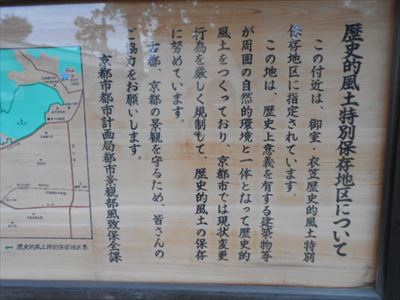 歴史的風土特別保存地区について
この付近は、御室・衣笠歴史的風土特別
保存地区に指定されています。
この地は、歴史上意義を有する建築物等
が周囲の自然的環境と一体となって歴史的
風土をつくっており、京都市では現状変更
行為を厳しく規制して、歴史的風土の保存
に努めています。
古都、京都の景観を守るため、皆さんの
ご協力をお願いします。
京都市都市計画局都市景観部風致保全課
歴史的風土特別保存地区界